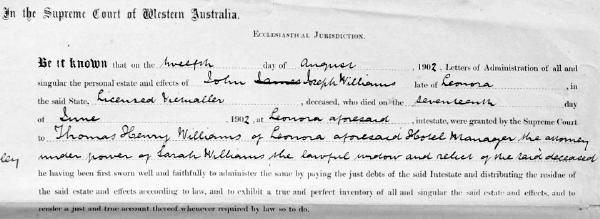 In the Supreme Court of Western Australia.
ECCLESIASTICAL JURISDICTION.
Be it known that on the twelfth day of August 1902, Letters of Administration of all and
singular the personal estate and effects of John James Joseph Williams late of Leonora, in
the said State, Licensed Victualler, deceased, who died on the seventeenth day
of June 1902, at Leonora aforesaid, intestate, were granted by the Supreme Court
to Thomas Henry Williams of Leonora aforesaid Hotel Manager the attorney
ley under power of Sarah Williams the lawful widow and relict of the said deceased
he having been first sworn well and faithfully to administer the same by paying the just debts of the said Intestate and distributing the residue of
the said estate and effects according to law, and to exhibit a true and perfect inventory of all and singular the said estate and effects, and to
render a just and true account thereof whenever required by law so to do.